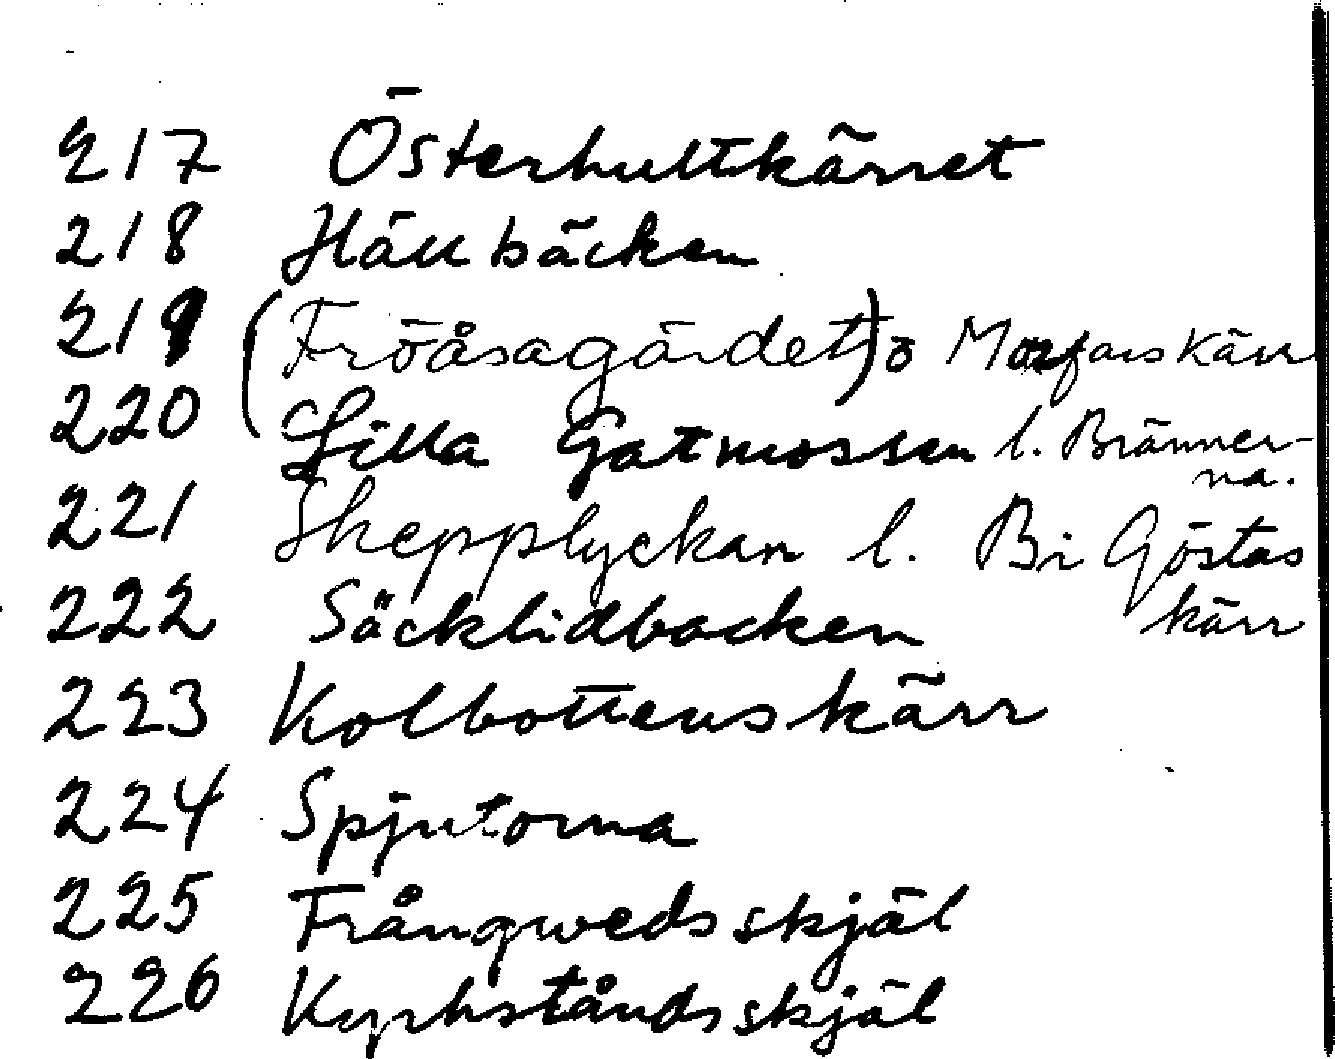 217 Österhultkärret
218 Hällbäcken
219 (Fröåsagärdet) o Morfarskärr
220 Lilla Gatmossen l. Bränner-
na.
221 Skepplyckan l. Bi Göstas
kärr
222 Säcklidbacken
223 Kolbottenskärr
224 Spjutorna
225 Frånqwedsskjäl
226 skjäl